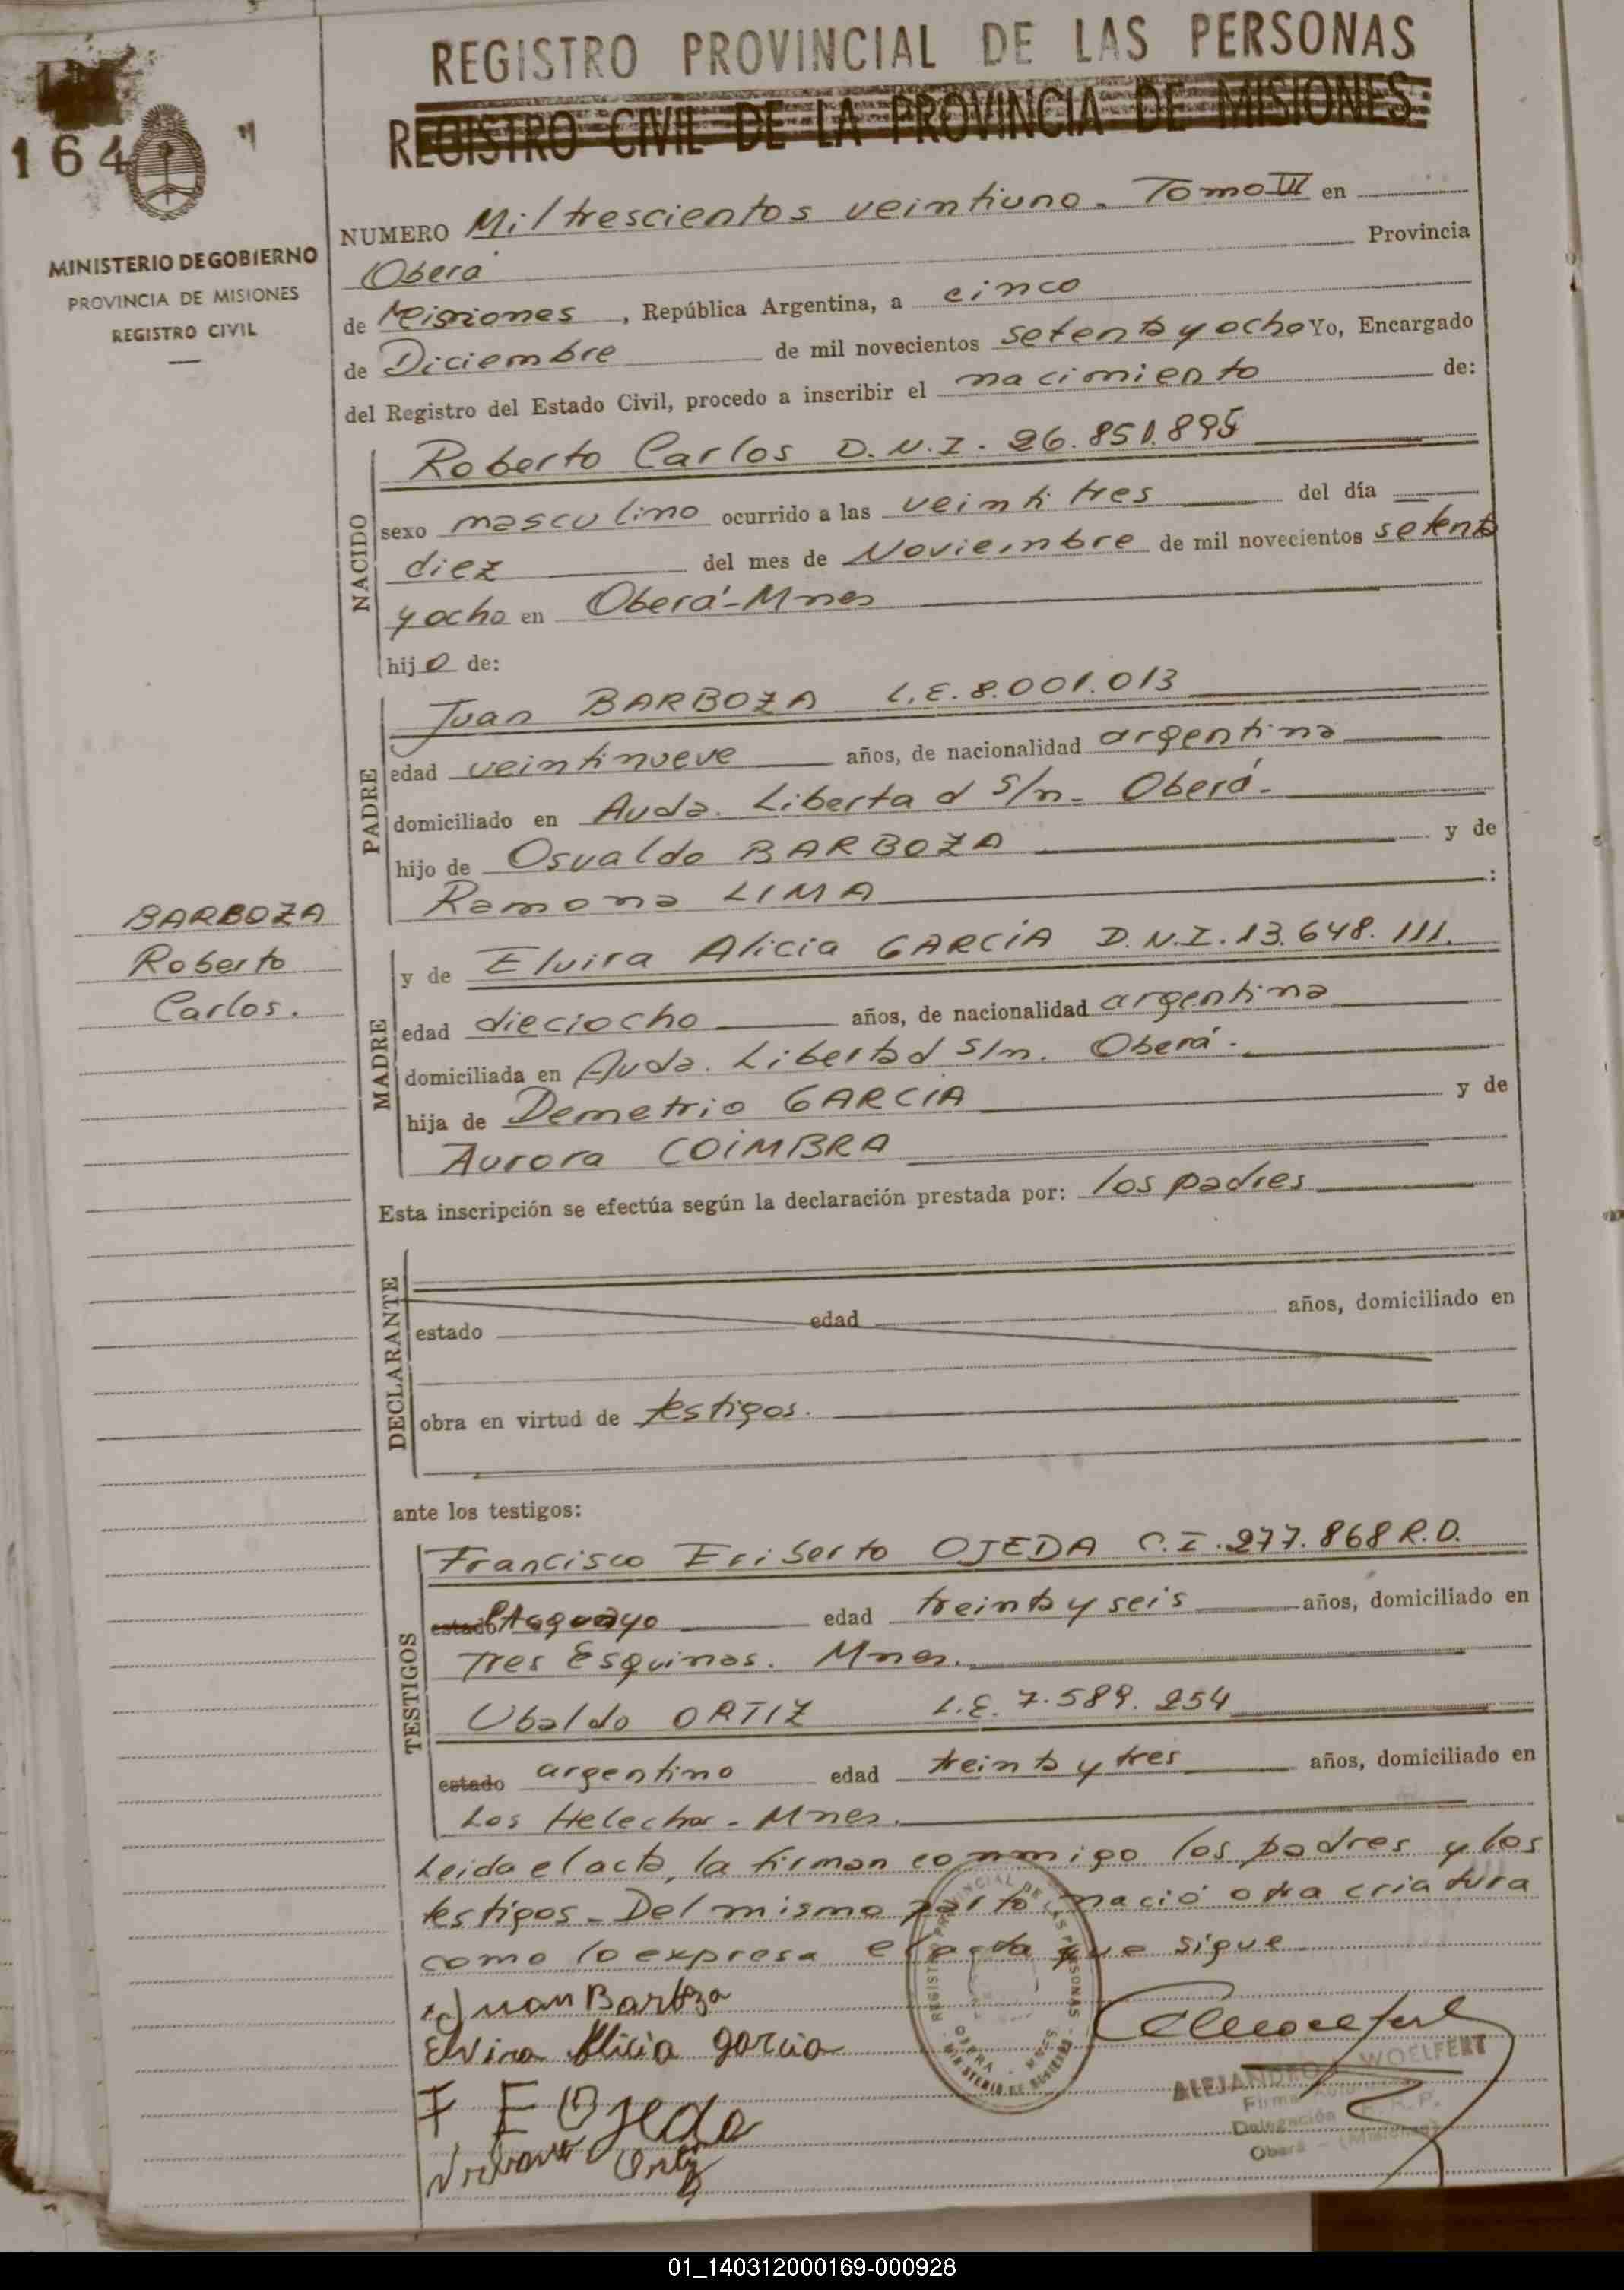 REGISTRO PROVINCIAL DE LAS PERSONAS
REGISTRO CIVIL DE LA PROVINCIA DE MISIONES
164
MINISTERIO DE GOBIERNO
PROVINCIA DE MISIONES
REGISTRO CIVIL
NUMERO Mil trescientos veintiuno. Tomo III en
Oberá Provincia
de Misiones, República Argentina, a cinco
de Diciembre de mil novecientos setenta y ocho Yo, Encargado
del Registro del Estado Civil, procedo a inscribir el nacimiento de:
NACIDO
Roberto Carlos D.N.I. 26.851.895
sexo masculino ocurrido a las veintitres del día
diez del mes de Noviembre de mil novecientos setenta
y ocho en Oberá-Mnes
hijo de:
PADRE
Juan BARBOZA L.E. 8.001.013
edad veintinueve años, de nacionalidad argentina
domiciliado en Avda. Libertad s/n. Oberá.
hijo de Osvaldo BARBOZA y de
Ramona LIMA :
BARBOZA
Roberto
Carlos.
MADRE
y de Elvira Alicia GARCÍA D.N.I. 13.648.111.
edad dieciocho años, de nacionalidad argentina
domiciliada en Avda. Libertad s/n. Oberá.
hija de Demetrio GARCÍA y de
Aurora COIMBRA
Esta inscripción se efectúa según la declaración prestada por: los padres
DECLARANTE
estado edad años, domiciliado en
obra en virtud de testigos.
ante los testigos:
TESTIGOS
Francisco Eriberto OJEDA C.I. 277.868 R.O.
estado edad treinta y seis años, domiciliado en
Tres Esquinas. Mnes.
Ubaldo ORTIZ L.E. 7.589.254
estado argentino edad treinta y tres años, domiciliado en
Los Helechos - Mnes.
Leida el acta, la firman conmigo los padres y los
testigos - Del mismo parto nació otra criatura
como lo expresa el acta que sigue
Juan Barboza
Elvira Alicia garcia
F E Ojeda
Ortiz
REGISTRO PROVINCIAL DE LAS PERSONAS
OBERA - MNES.
MINISTERIO DE GOBIERNO
ALEJANDRO WOELFERT
Firma
Delegación R. P.
Oberá - (Misiones)
01_140312000169-000928